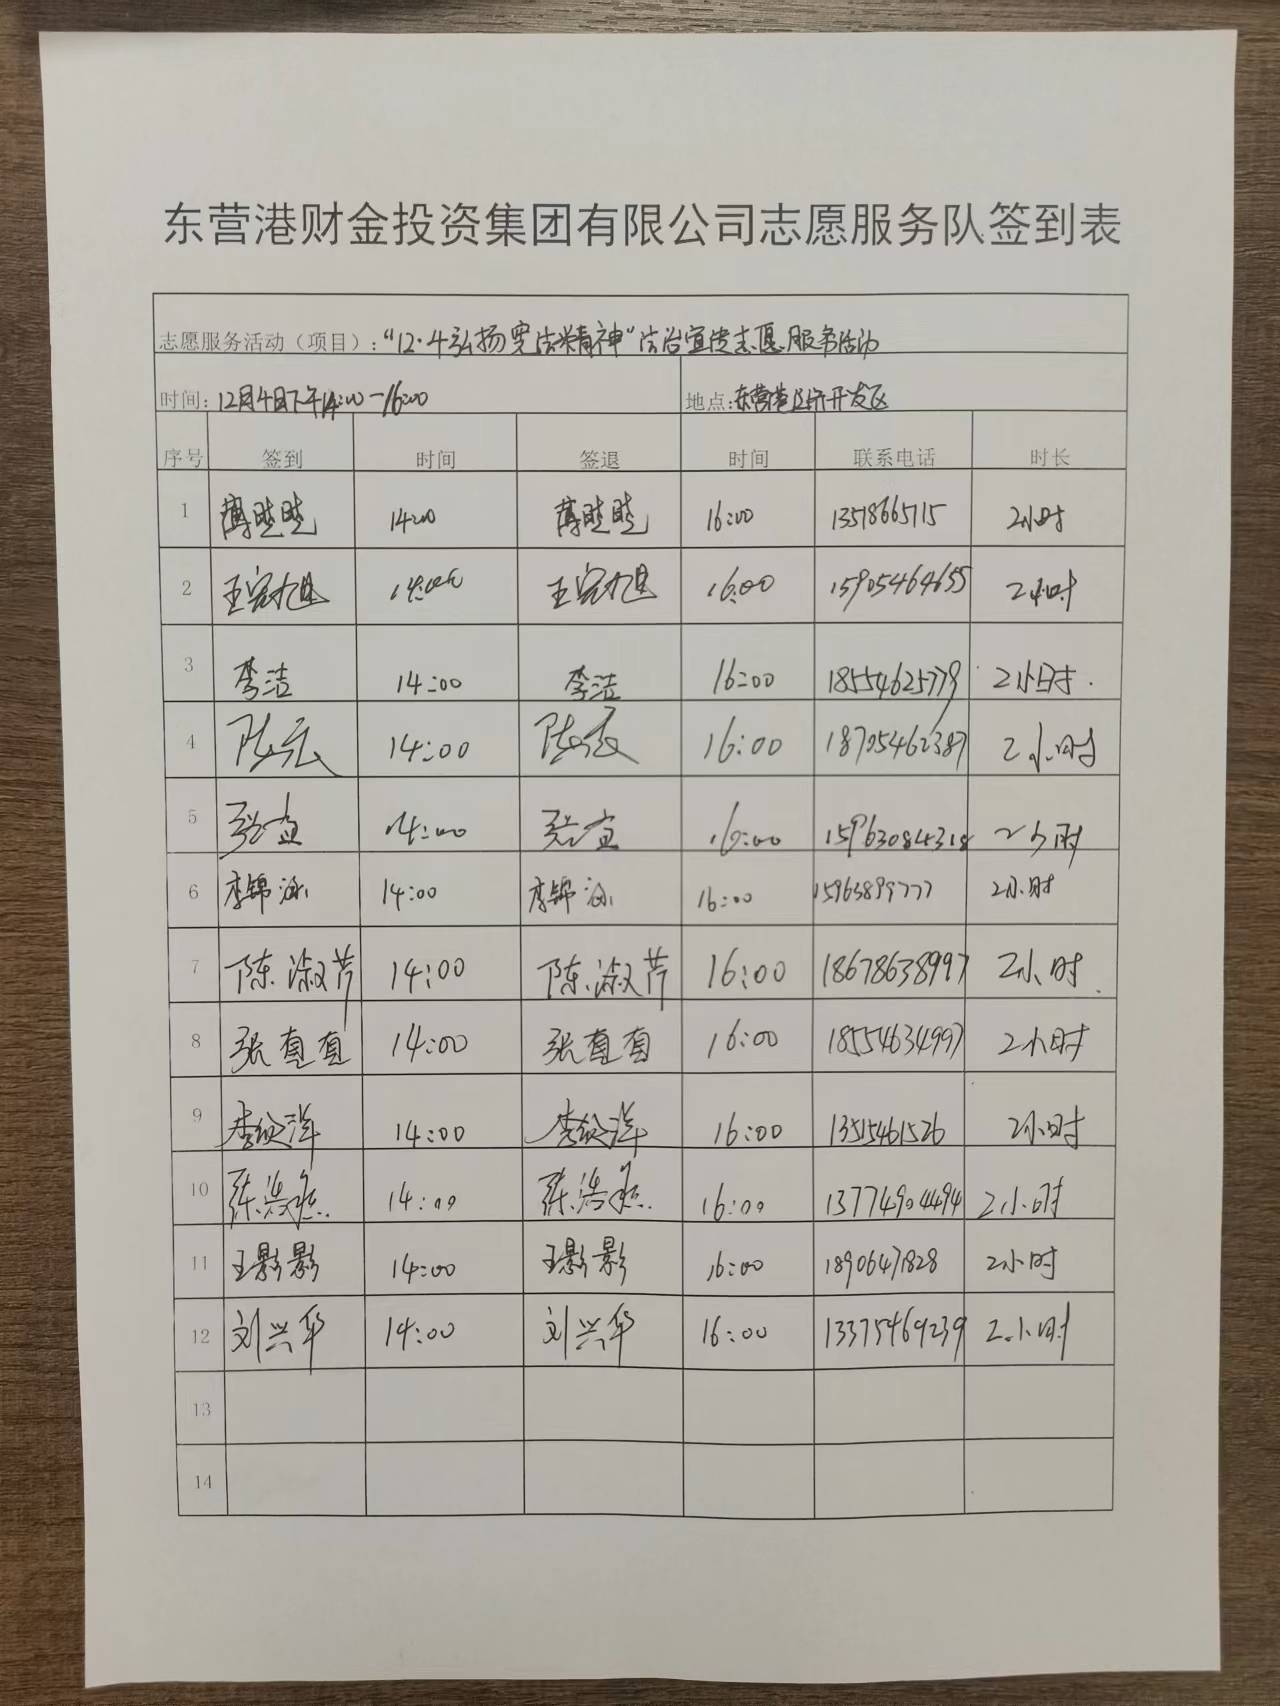 东营港财金投资集团有限公司志愿服务队签到表
志愿服务活动（项目）："12·4弘扬宪法精神"法治宣传志愿服务活动
时间：12月4日下午14:00—16:00 地点：东营港经济开发区
序号 签到 时间 签退 时间 联系电话 时长
1 薄晓晓 14:00 薄晓晓 16:00 13518665715 2小时
2 14:00 16:00 15905464655 2小时
3 李洁 14:00 李洁 16:00 18554625779 2小时.
4 14:00 16:00 18705462387 2小时
5 14:00 16:00 15963084318 2小时
6 李锦泳 14:00 李锦泳 16:00 15963899777 2小时
7 陈淑芹 14:00 陈淑芹 16:00 18678638997 2小时.
8 张真真 14:00 张真真 16:00 18554634997 2小时
9 14:00 16:00 13515461526 2小时
10 14:00 16:00 13774904494 2小时
11 王影影 14:00 王影影 16:00 18906471828 2小时
12 刘兴华 14:00 刘兴华 16:00 13375469239 2小时
13
14